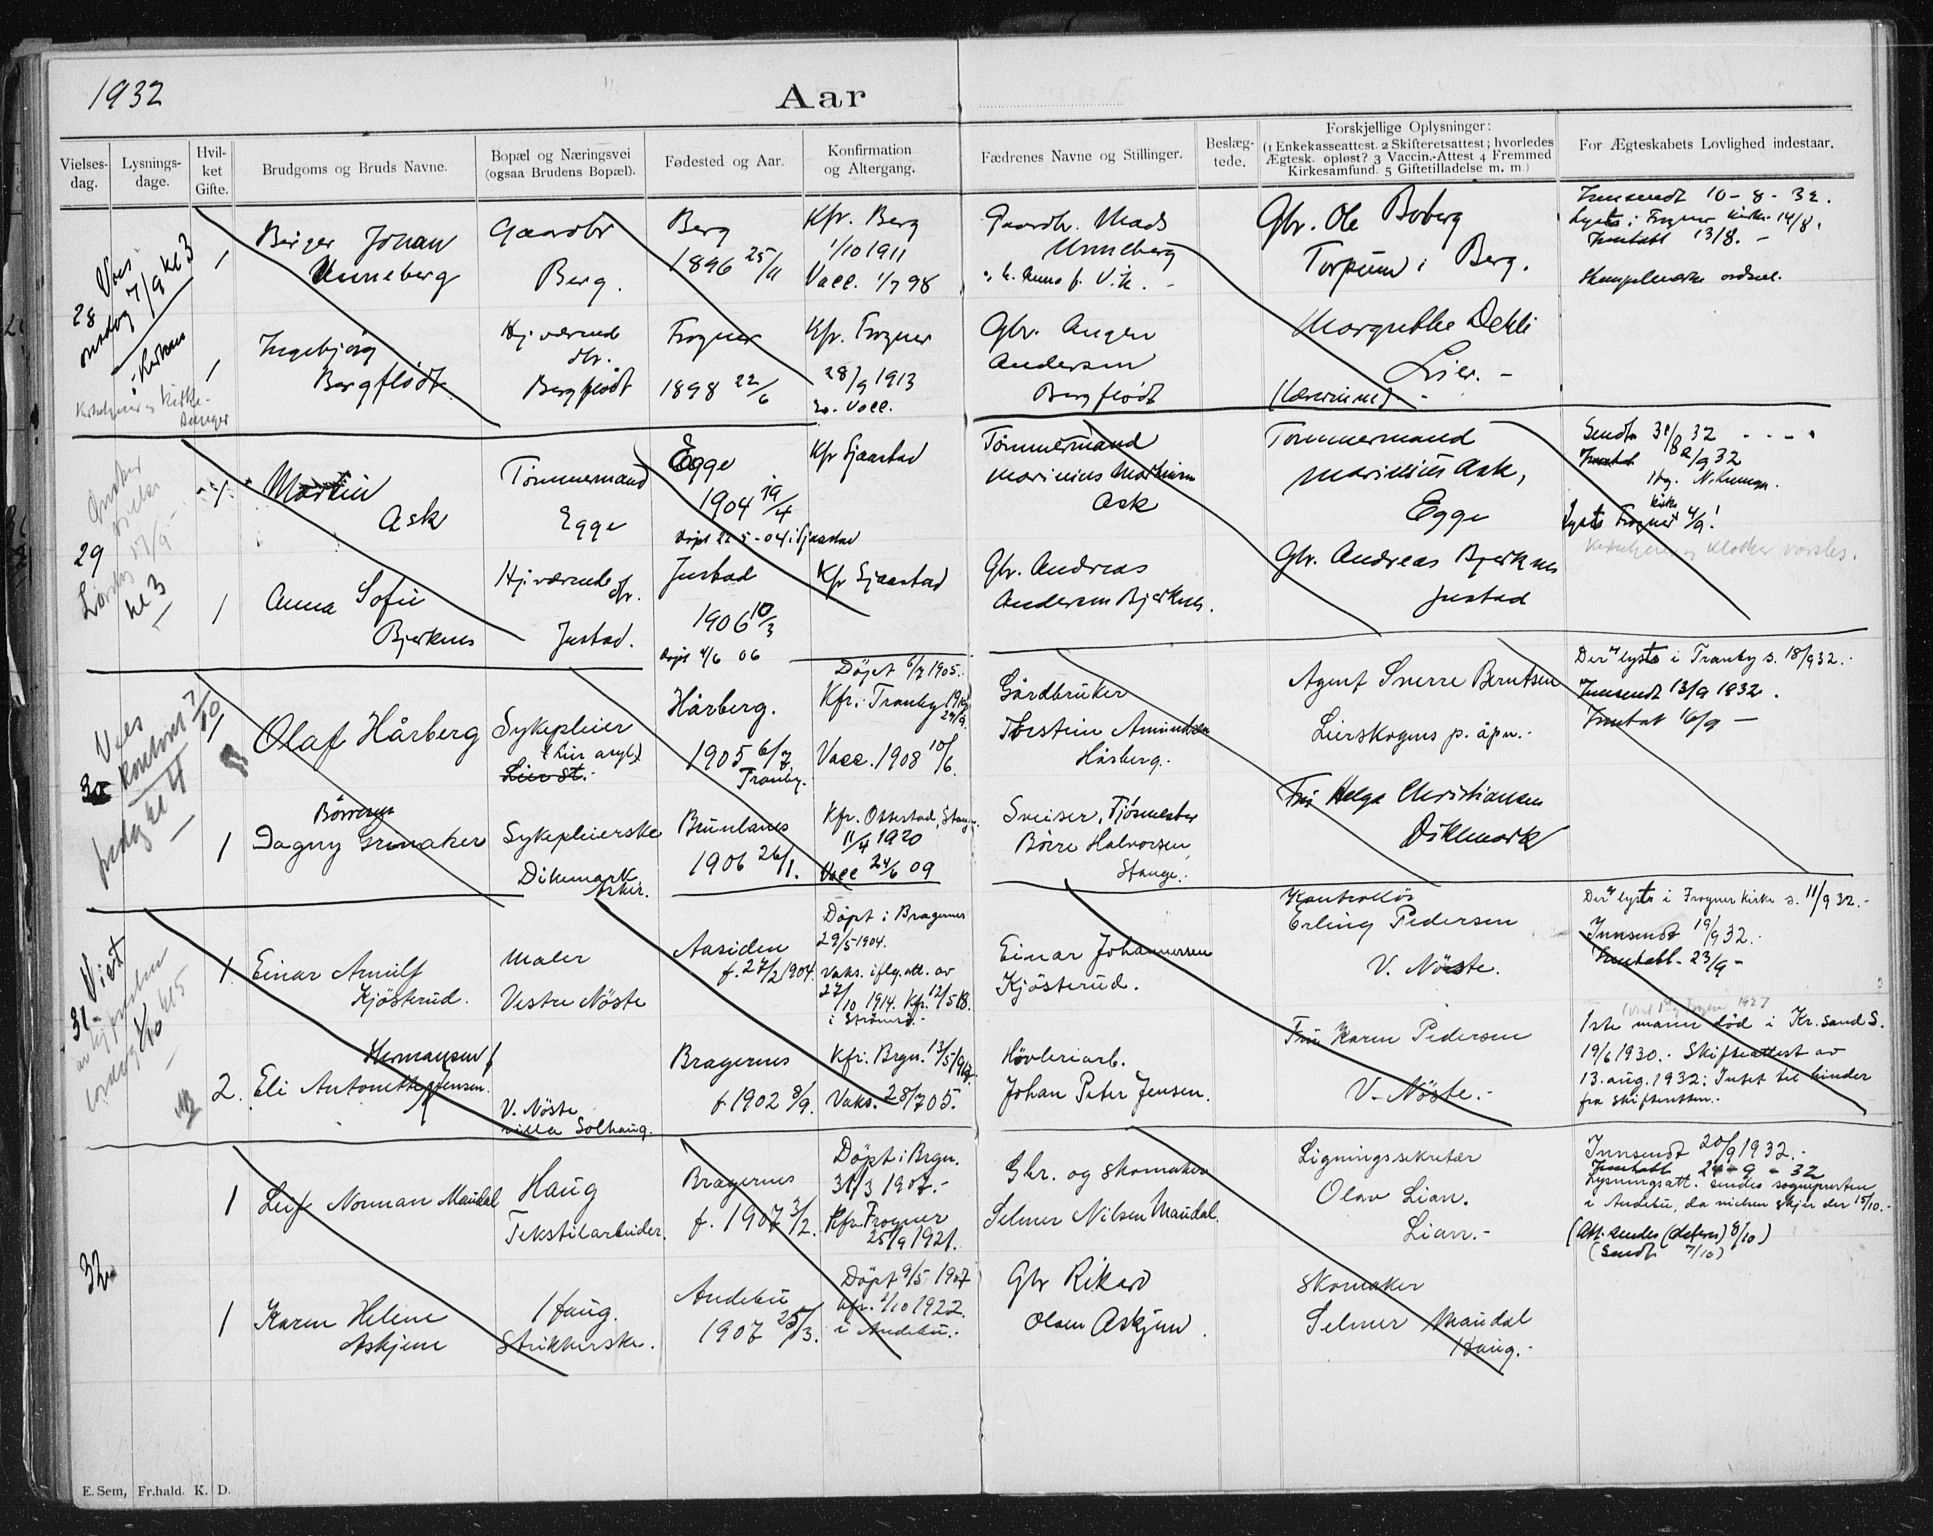 1932
Aar
Vielses-
dag.
Lysnings-
dage.
Hvil-
ket
Gifte.
Brudgoms og Bruds Navne.
Bopæl og Næringsvei
(ogsaa Brudens Bopæl).
Fødested og Aar.
Konfirmation
og Altergang.
Fædrenes Navne og Stillinger.
Beslæg-
tede.
Forskjellige Oplysninger:
(1 Enkekasseattest. 2 Skifteretsattest; hvorledes
Ægtesk. opløst? 3 Vaccin.-Attest 4 Fremmed
Kirkesamfund. 5 Giftetilladelse m. m.)
For Ægteskabets Lovlighed indestaar.
28
onsdag 7/9 kl 3
1
Birger Johan
Unneberg
Gaardbr
Berg.
Berg
1896 25/11
Kfr. Berg
1/10 1911
Vacc. 1/7 98
Gaardbr. Mads
Unneberg
Gbr. Ole Boberg
Torpum i Berg.
Innsendt 10-8-32.
Lyst i Frogner kirke 14/8.
13/8. -
1
Ingebjörg
Bergflødt.
Hj. værende
dtr.
Bergflødt
Frogner
1898 22/6
Kfr. Frogner
28/9 1913
Vacc.
Gbr.
Andersen
Bergflödt
Margrethe Dehli
Lier. -
29
Lördag 17/9
kl 3
Martin
Ask
Tømmermand
Egge
Egge
1904 19/4
Døpt 22-5-04 i Sjaastad
Kfr Sjaastad
Tømmermand
Marinius
Ask
Tømmermand
Marinius Ask,
Egge
Sendt 31/8 32
2/9 32
Lyst Frogner kirke 4/9!
1
Anna Sofie
Bjerknes
Hj. værende dtr.
Justad.
Justad
1906 10/3
Døpt 4/6 06
Kfr Sjaastad
Gbr. Andreas
Andersen Bjerknes.
Gbr. Andreas Bjerknes
Justad
30
Vies
kontoret 7/10
fredag kl 4
Olaf Hårberg
Sykepleier
(Lier asyl)
Lier st.
Hårberg.
1905 6/7
Tranby.
Döpt 6/7 1905.
Kfr. i Tranby
Vacc. 1908 10/6.
Gårdbruker
Torstein Amundsen
Hårberg.
Agent Sverre Berntsen
Lierskogens p. åpn.
Der lyst i Tranby s. 18/9 32.
Innsendt 13/9 1932.
16/9 -
1
Börresen
Dagny Grinaker
Sykepleierske
Dikemark
Asker.
Brunlanes
1906 26/1.
Kfr. Ottestad, Stange.
11/4 1920
Vacc 24/6 09
Sveiser, Fjösmester
Börre Halvorsen
Stange.
Frk Helga Christiansen
Dikemark
31
Viet
lördag 1/10 kl 5
1.
Einar Arnulf
Kjösterud.
Maler
Vestre Nöste
Aasiden
f. 27/2 1904.
Döpt i Bragernes
29/5 1904.
Vaks. iflg. att. av
27/10 1914. Kfr. 12/5 18.
i Strömsö.
Einar Johannessen
Kjösterud.
Kontrollör
Erling Pedersen
V. Nöste.
Der lyst i Frogner kirke s. 11/9 32.
Innsendt 19/9 32.
23/9 -
2.
Hermansen f.
Eli Antonette Jensen.
V. Nöste
villa Solhaug.
Bragernes
f. 1902 8/9.
Kfr. Brgn. 13/5
Vaks. 28/7 05.
Høvleriarb.
Johan Peter Jensen.
Fru Karen Pedersen
V. Nöste.
1ste mann död i Kr. sand S.
19/6 1930. Skifteattest av
13. aug. 1932: Intet til hinder
fra skifteretten.
32
1
Leif Norman Maudal
Haug
Tekstilarbeider.
Bragernes
f. 1907 3/2.
Döpt i Brgn.
31/3 1907.
Kfr. Frogner
25/9 1921.
Gbr. og skomaker
Selmer Nilsen Maudal.
Ligningssekretær
Olav Lian.
Lian.
Innsendt 20/9 1932.
24-9-32
Lysningsatt. sendes sognepresten
i Andebu, da vielsen skjer der 15/10.
(Sendt 7/10)
1
Karen Helene
Askjem
Haug.
Strikkerske.
Andebu
1907 25/3.
Döpt 9/5 1907
Kfr. 1/10 1922.
i Andebu.
Gbr Rikard
Olsen Askjem.
Skomaker
Selmer Maudal
Haug.
E. Sem, Fr.hald. K. D.